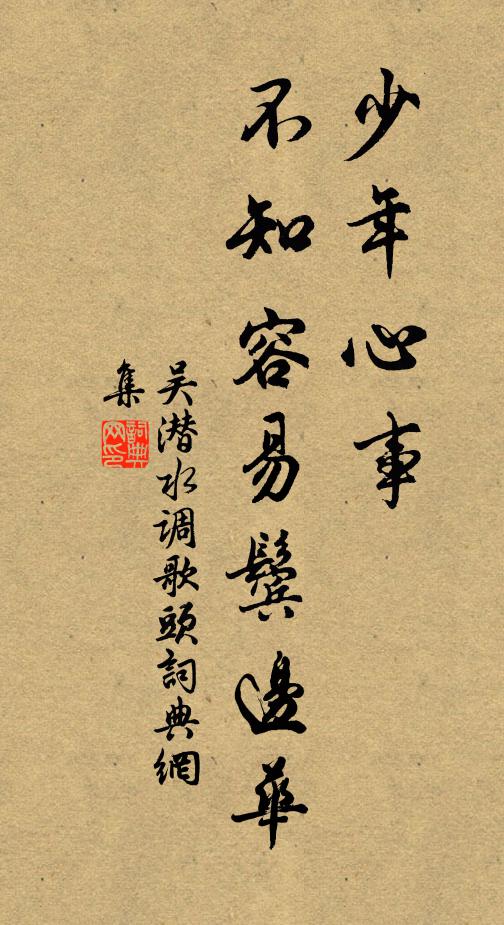 少年心事
不知容易鬢邊華
吴潜水调歌頭詞典網
集
詞典
网印